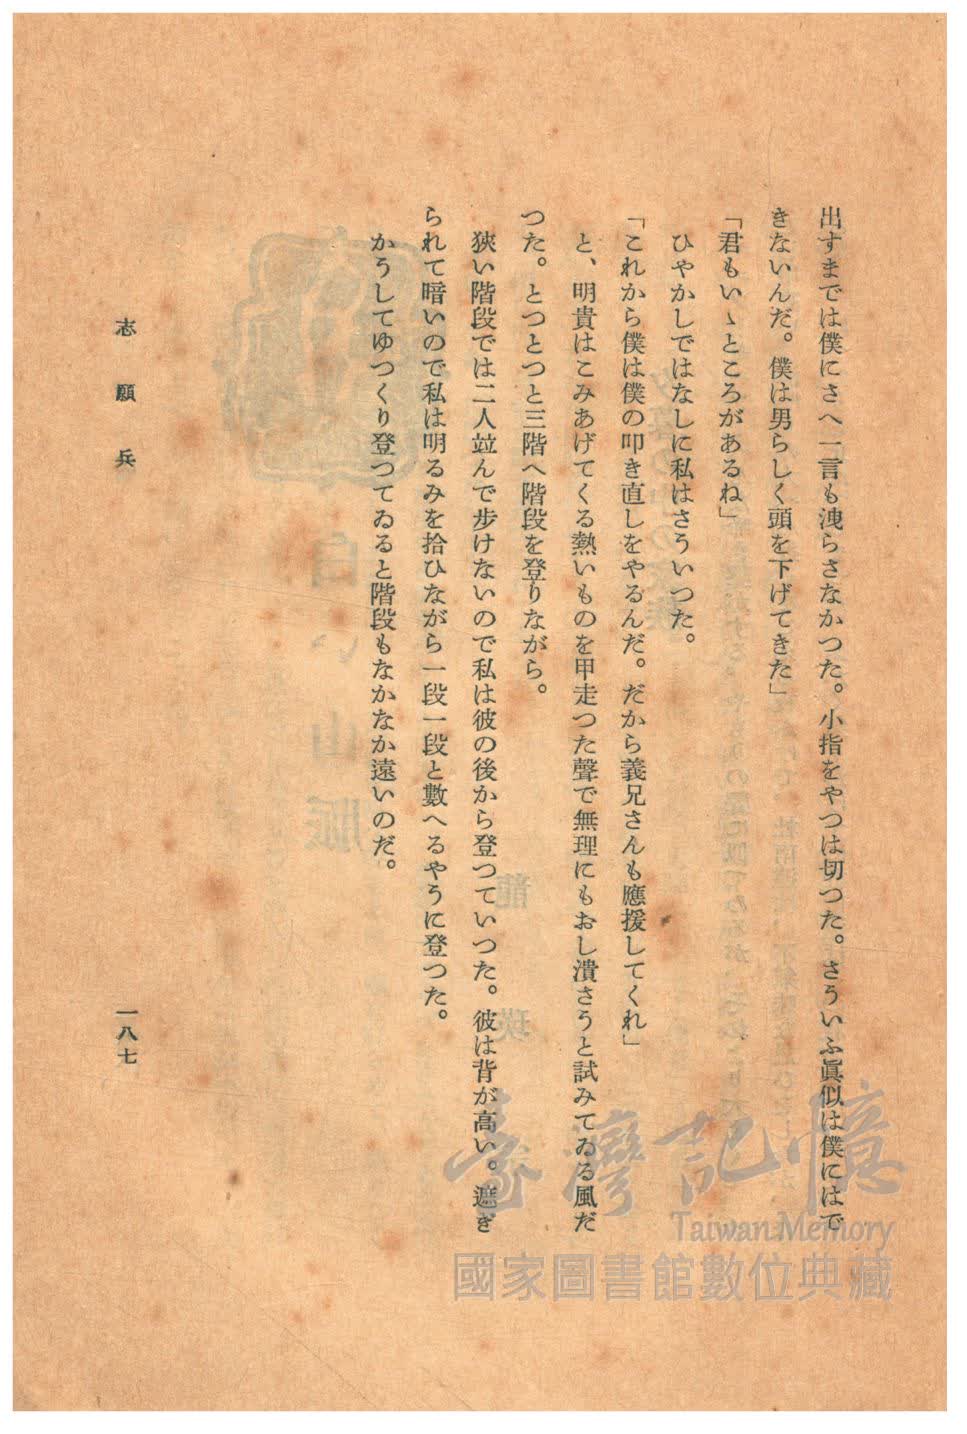 出すまでは僕にさへ一言も洩らさなかつた。小指をやつは切つた。さういふ眞似は僕にはで
きないんだ。僕は男らしく頭を下げてきた」
「君もいゝところがあるね」
ひやかしではなしに私はさういつた。
「これから僕は僕の叩き直しをやるんだ。だから義兄さんも應援してくれ」
と、明貴はこみあげてくる熱いものを甲走つた聲で無理にもおし潰さうと試みてゐる風だ
つた。とつとつと三階へ階段を登りながら。
狹い階段では二人竝んで步けないので私は彼の後から登つていつた。彼は背が高い。遮ぎ
られて暗いので私は明るみを拾ひながら一段一段と數へるやうに登つた。
かうしてゆつくり登つてゐると階段もなかなか遠いのだ。
志願兵
一八七
臺灣記憶
Taiwan Memory
國家圖書館數位典藏